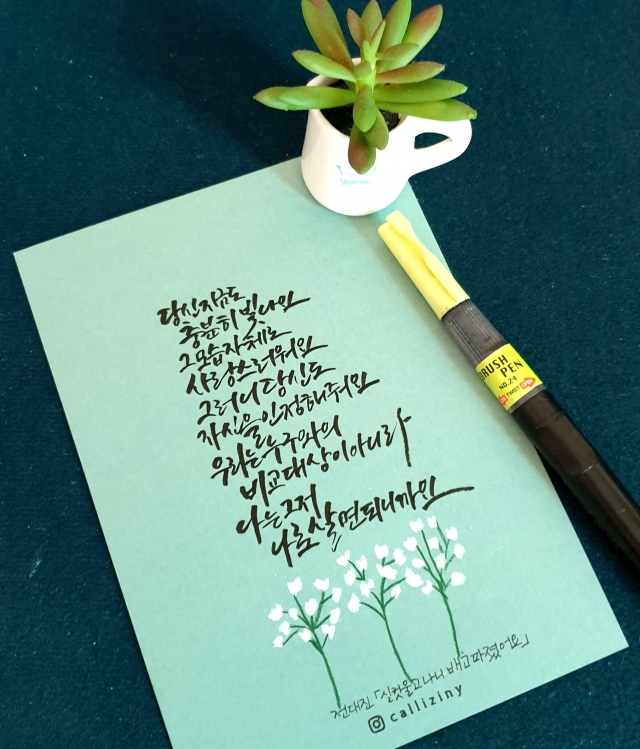 당신지금도
충분히 빛나요
그모습 자체로
사랑스러워요
그러니 당신도
자신을 인정해줘요
우리는 누구와의
비교대상이 아니라
나는 그저
나로 살면 되니까요
전대진 「실컷 울고나니 배고파졌어요」
calliziny
BRUSH PEN
NO.24
TWIST